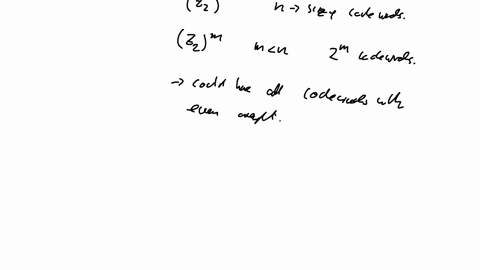 (Z₂) n → size codewords.
(Z₂)ᵐ m<n 2ᵐ codewords.
→ could have all codewords with
even weight.